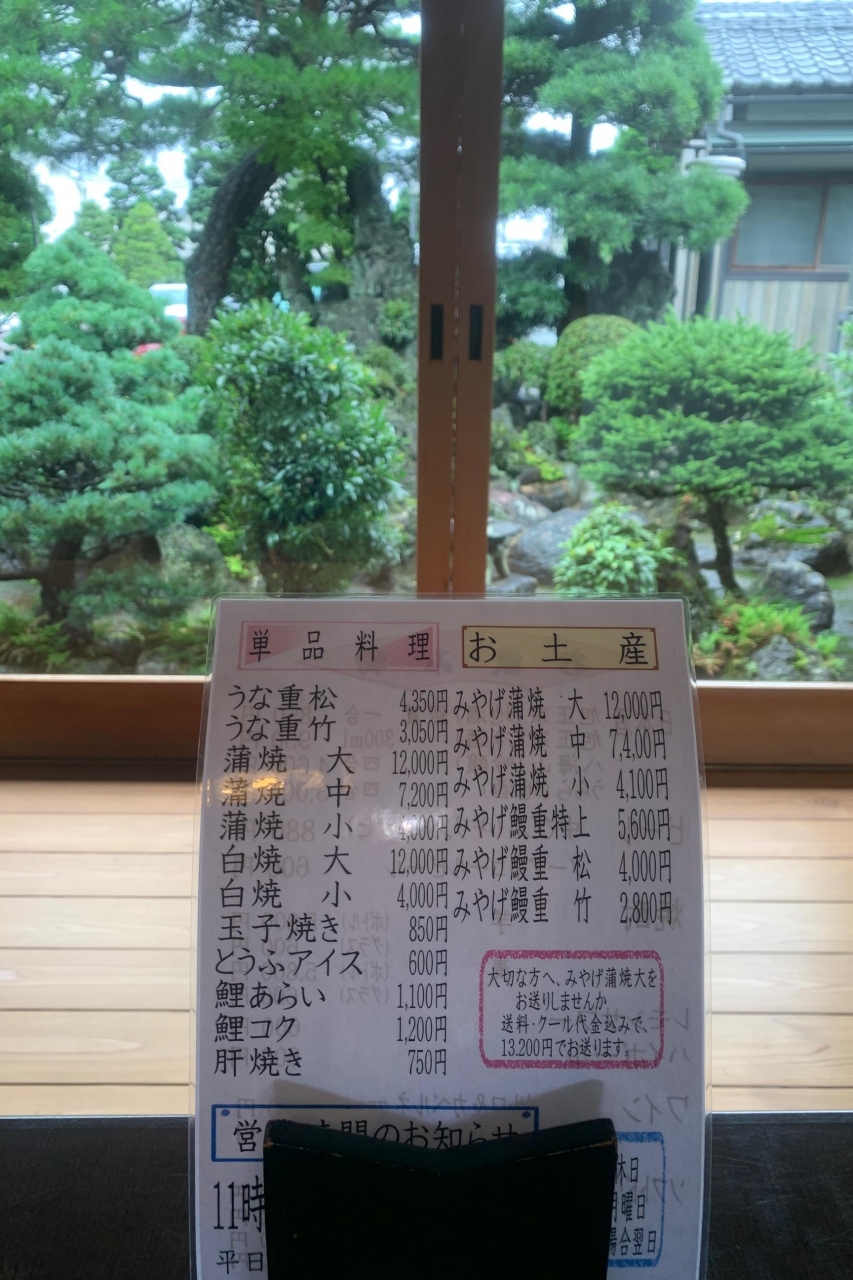 単品料理
うな重松 4,350円
うな重竹 3,050円
蒲焼 大 12,000円
蒲焼 中 7,200円
蒲焼 小
白焼 大 12,000円
白焼 小 4,000円
玉子焼き 850円
とうふアイス 600円
鯉あらい 1,100円
鯉コク 1,200円
肝焼き 750円
お土産
みやげ蒲焼 大 12,000円
みやげ蒲焼 中 7,4,00円
みやげ蒲焼 小 4,100円
みやげ鰻重特上 5,600円
みやげ鰻重 松 4,000円
みやげ鰻重 竹 2,800円
大切な方へ、みやげ蒲焼大を
お送りしませんか
送料・クール代金込みで、
13.200円でお送ります。
営 時間のお知らせ
11時
平日
休日
月曜日
場合翌日